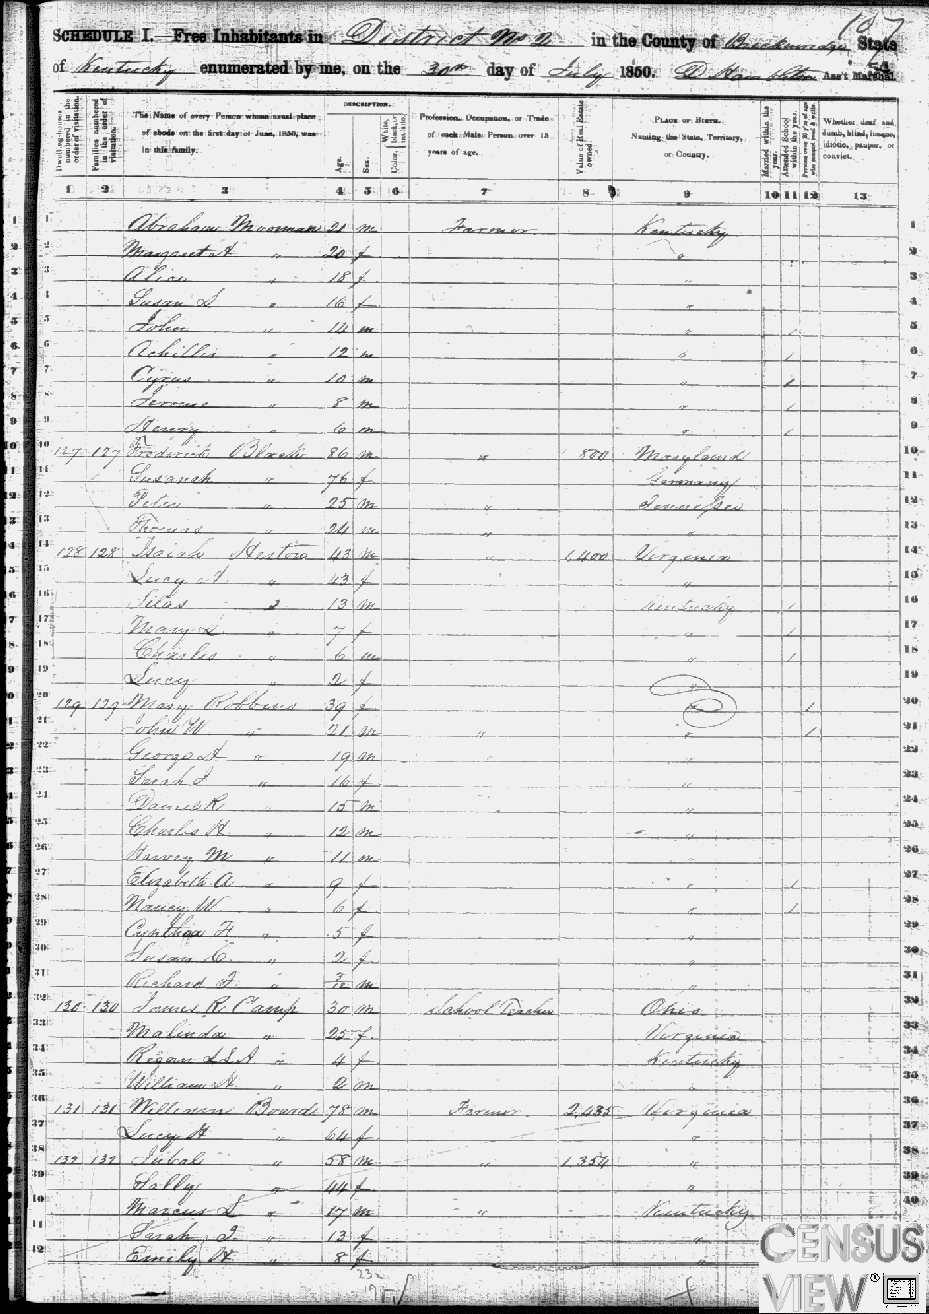 187
SCHEDULE I.—Free Inhabitants in District No 2 in the County of Breckenridge State
of Kentucky enumerated by me, on the 30th day of July 1850. D. Hambleton Ass't Marshal.
54
Dwelling-houses numbered in the order of visitation.
Families numbered in the order of visitation.
The Name of every Person whose usual place of abode on the first day of June, 1850, was in this family.
DESCRIPTION.
Age.
Sex.
Color, White, black, or mulatto.
Profession, Occupation, or Trade of each Male Person over 15 years of age.
Value of Real Estate owned.
PLACE OF BIRTH. Naming the State, Territory, or Country.
Married within the year.
Attended School within the year.
Persons over 20 y'rs of age who cannot read & write
Whether deaf and dumb, blind, insane, idiotic, pauper, or convict.
1 2 3 4 5 6 7 8 9 10 11 12 13
1 Abraham Moorman 21 m Farmer Kentucky 1
2 Margaret A " 20 f " 2
3 Alice " 18 f " 3
4 Susan S " 16 f " 4
5 John " 14 m " 1 5
6 Achillis " 12 m " 1 6
7 Cyrus " 10 m " 1 7
8 8 m " 1 8
9 Henry " 6 m " 1 9
10 127 127 Frederick Black 86 m " 800 Maryland 10
11 Susanah " 76 f Germany 11
12 Peter " 25 m " Tennessee 12
13 Thomas " 24 m " " 13
14 128 128 Isaiah 43 m " 1,400 Virginia 14
15 Lucy A " 43 f " 15
16 Silas " 13 m Kentucky 1 16
17 Mary L " 7 f " 1 17
18 Charles " 6 m " 1 18
19 Lucy " 2 f " 19
20 129 129 Mary Robbins 39 f " 1 20
21 John W " 21 m " " 1 21
22 George A " 19 m " 22
23 Sarah J " 16 f " 23
24 Daniel R " 15 m " 24
25 Charles H " 12 m " 25
26 Harvey M " 11 m " 26
27 Elizabeth A " 9 f " 1 27
28 Nancy W " 6 f " 1 28
29 Cynthia F " 5 f " 29
30 Susan C " 2 f " 30
31 Richard F " 3/12 m " 31
32 130 130 James R Camp 30 m School Teacher Ohio 32
33 Malinda " 25 f Virginia 33
34 Regan " 4 f Kentucky 34
35 William H " 2 m " 35
36 131 131 William Boards 78 m Farmer 2,435 Virginia 36
37 Lucy H " 64 f " 37
38 132 132 Jubal " 58 m " 1,354 " 38
39 Sally " 44 f " 39
40 Marcus L " 17 m " Kentucky 40
41 Sarah J " 13 f " 41
42 Emily H " 8 f "
232
CENSUS
VIEW®